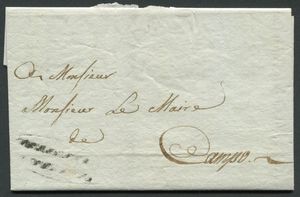 A Monsieur
Monsieur Le Maire
de
Campo